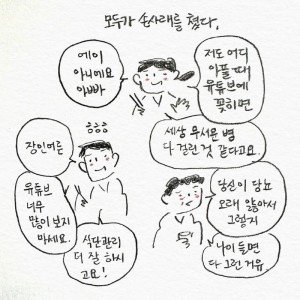 모두가 손사래를 쳤다.
에이
아니에요
아빠
저도 어디
아플 때
유튜브에
꽂히면
세상 무서운 병
다 걸린 것 같다고요.
장인어른
유튜브
너무
많이 보지
마세요.
식단관리
더 잘 하시
고요!
당신이 당뇨
오래 앓아서
그렇지
나이 들면
다 그런 거유.